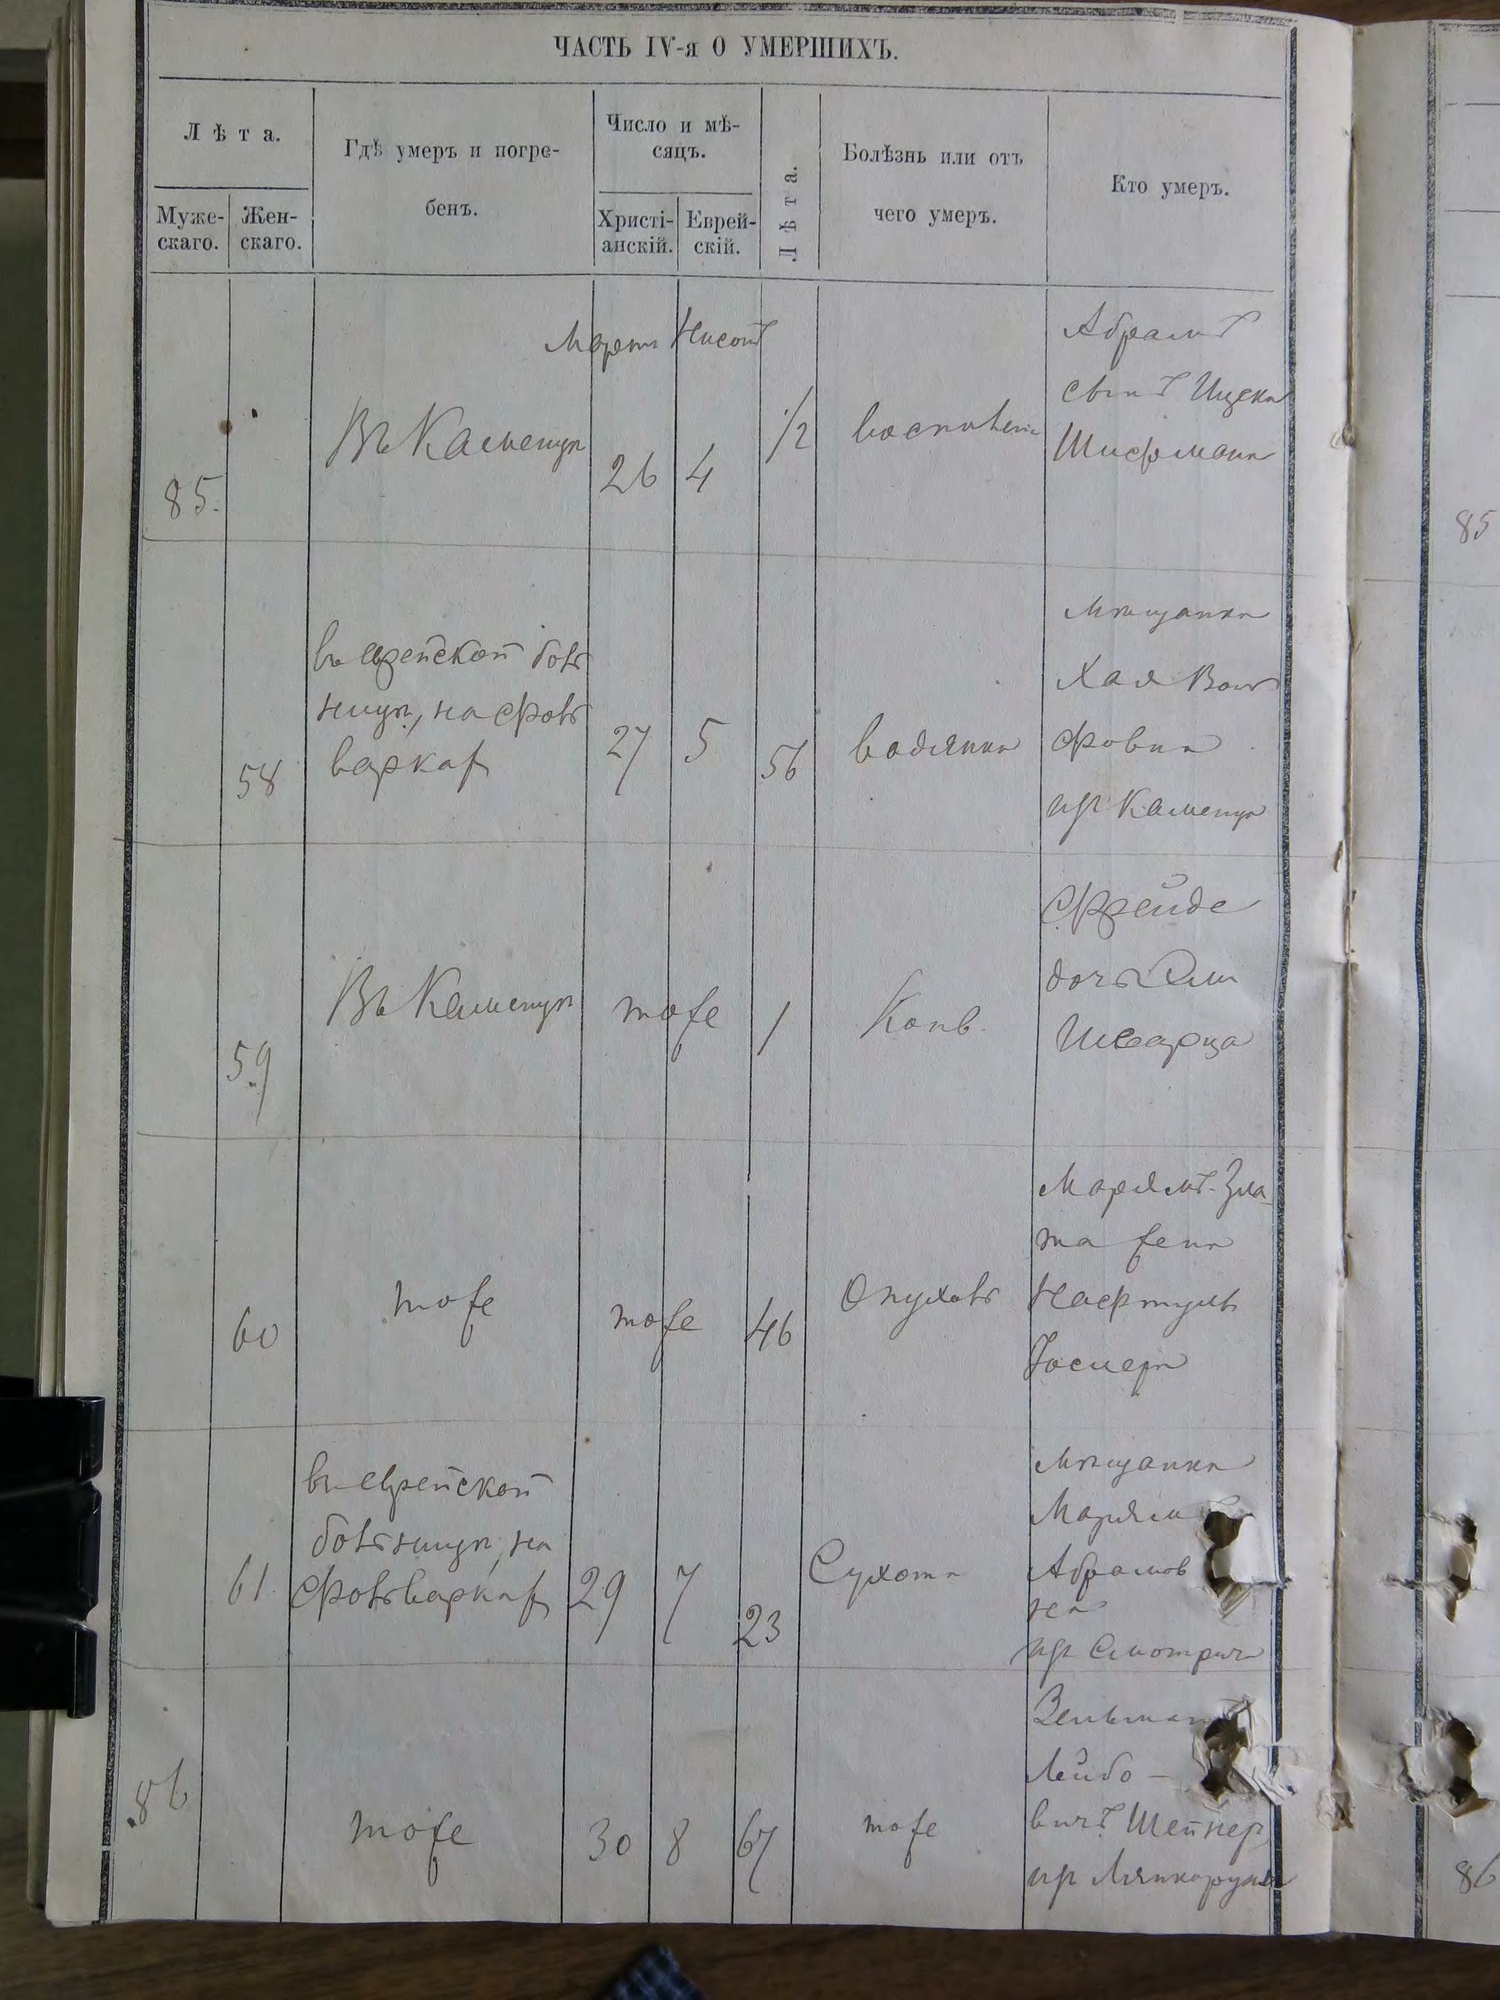 ЧАСТЬ IV-я О УМЕРШИХЪ.
Лѣта.
Муже-
скаго.
Жен-
скаго.
Гдѣ умеръ и погре-
бенъ.
Число и мѣ-
сяцъ.
Христі-
анскій.
Еврей-
скій.
Лѣта.
Болѣзнь или отъ
чего умеръ.
Кто умеръ.
Мартъ Нисонъ
85.
Въ Каменцѣ
26
4
1/2
воспаленіе
Абрамъ
сынъ Ицека
Шифмана
58
въ еврейской боль
ницѣ, на фоль
варках
27
5
56
водянка
Мѣщанка
Хая Воль
фовна
изъ Каменца
59
Въ Каменцѣ
тоже
1
Конв.
Фрейде
дочь Эли
Шварца
60
тоже
тоже
46
Опухоль
Марямъ-Зла
та жена
Нафтуль
61.
въ еврейской
больницѣ, на
фольварках
29
7
23
Сухота
Мѣщанка
Марям
Абрамов
на
изъ Смотрич
86
тоже
30
8
67
тоже
Зельман
Лейбо-
вичъ
изъ Лянцкоруня
85
86